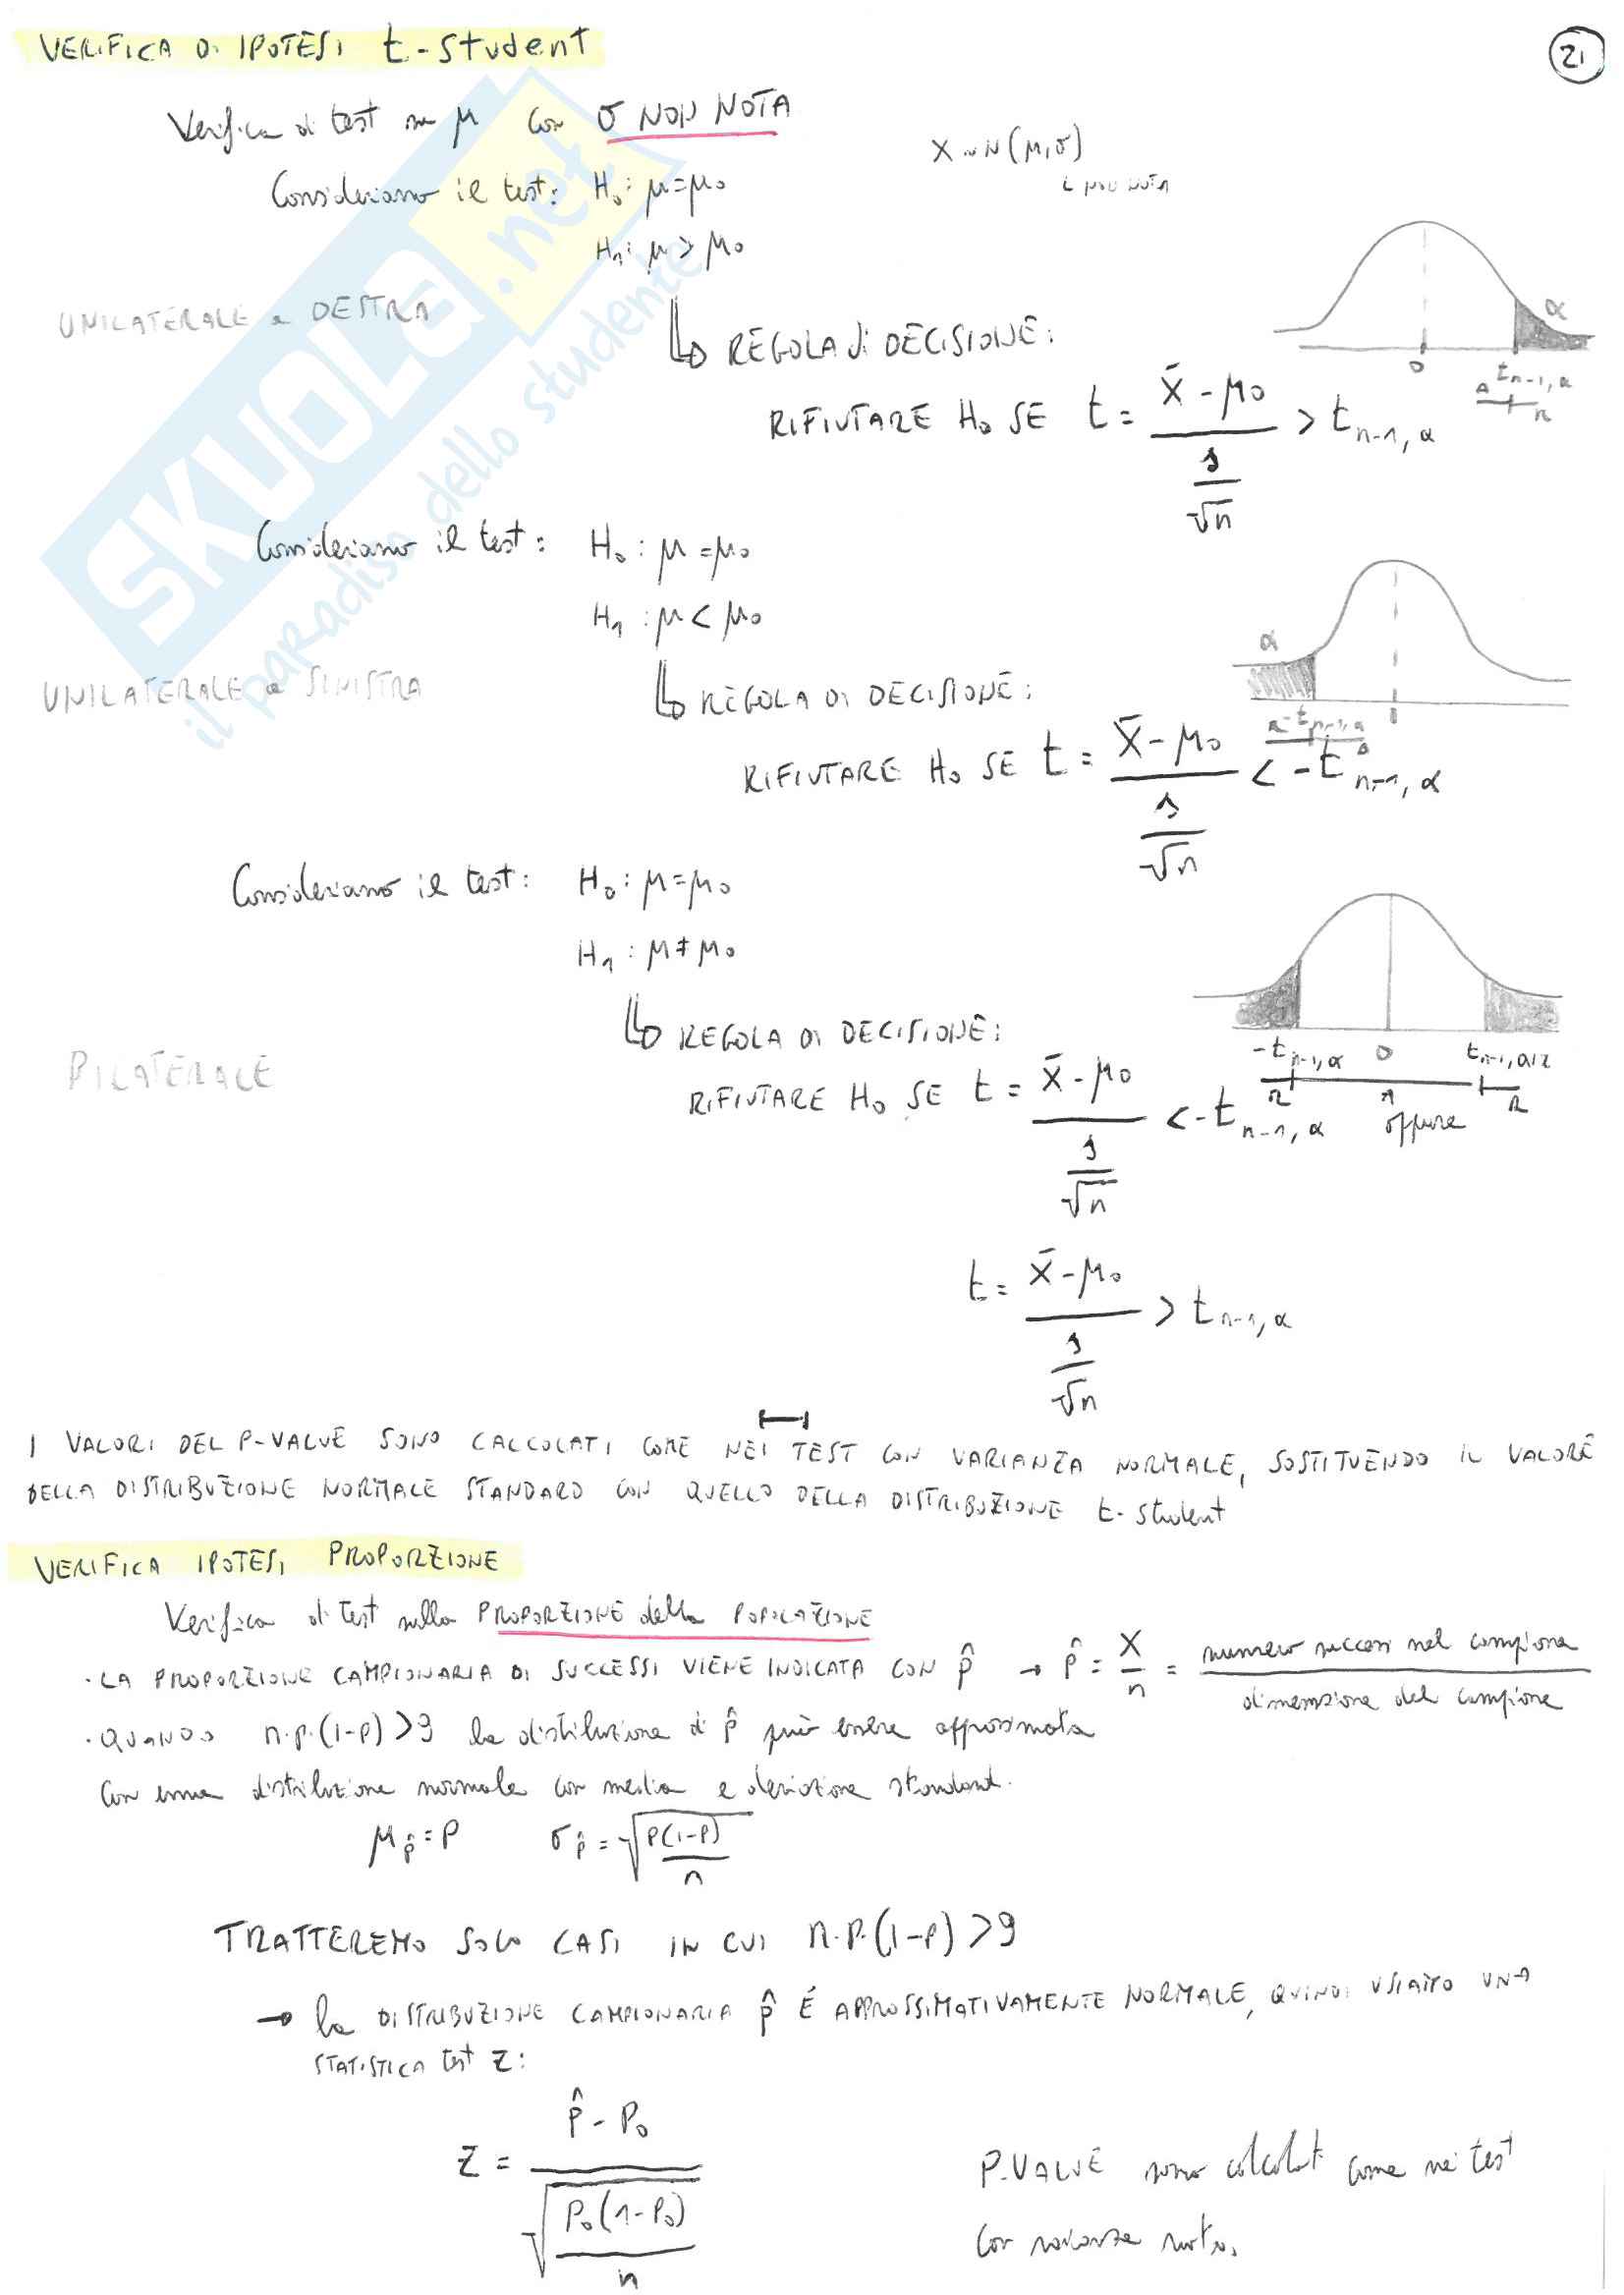 VERIFICA DI IPOTESI t-Student
21
Verifica di test su μ con σ NON NOTA
X ~ N(μ,σ)
↳ NON NOTA
Consideriamo il test: H₀: μ=μ₀
H₁: μ > μ₀
UNILATERALE a DESTRA
α
↳ REGOLA di DECISIONE:
0 tₙ₋₁,α
A R
RIFIUTARE H₀ SE t = (x̄ - μ₀) / (s/√n) > tₙ₋₁,α
Consideriamo il test: H₀: μ = μ₀
H₁: μ < μ₀
α
UNILATERALE a SINISTRA
↳ REGOLA DI DECISIONE:
-tₙ₋₁,α 0
R A
RIFIUTARE H₀ SE t = (x̄ - μ₀) / (s/√n) < -tₙ₋₁,α
Consideriamo il test: H₀: μ=μ₀
H₁: μ ≠ μ₀
↳ REGOLA DI DECISIONE:
BILATERALE
-tₙ₋₁,α 0 tₙ₋₁,α/2
R A R
RIFIUTARE H₀ SE t = (x̄ - μ₀) / (s/√n) < -tₙ₋₁,α oppure
t = (x̄ - μ₀) / (s/√n) > tₙ₋₁,α
I VALORI DEL P-VALUE SONO CALCOLATI COME NEI TEST CON VARIANZA NORMALE, SOSTITUENDO IL VALORE
DELLA DISTRIBUZIONE NORMALE STANDARD CON QUELLO DELLA DISTRIBUZIONE t-Student
VERIFICA IPOTESI PROPORZIONE
Verifica di test sulla PROPORZIONE della POPOLAZIONE
· LA PROPORZIONE CAMPIONARIA DI SUCCESSI VIENE INDICATA CON p̂ → p̂ = X/n = numero successi nel campione / dimensione del campione
· QUANDO n·p·(1-p)>9 la distribuzione di p̂ può essere approssimata
con una distribuzione normale con media e deviazione standard.
μp̂ = P σp̂ = √(P(1-P)/n)
TRATTEREMO SOLO CASI IN CUI n·P·(1-P)>9
→ la DISTRIBUZIONE CAMPIONARIA p̂ É APPROSSIMATIVAMENTE NORMALE, QUINDI USIAMO UNA
STATISTICA test Z:
Z = (p̂ - P₀) / √(P₀(1-P₀)/n)
P-VALUE sono calcolati come nei test
con varianza nota.
SKUOLA.net
il paradiso dello studente